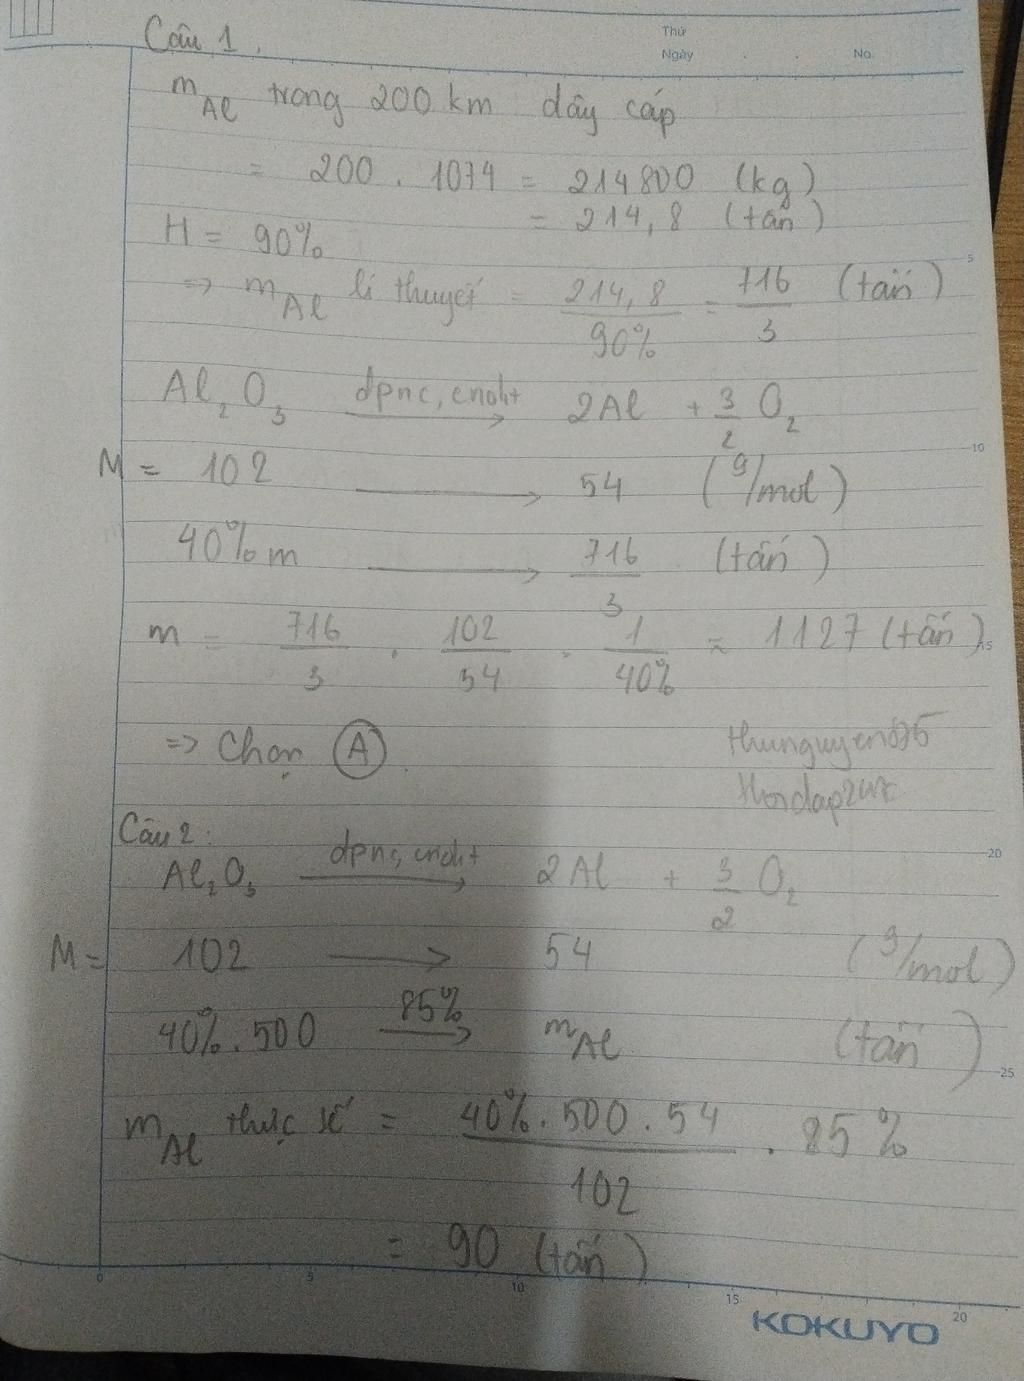 Câu 1.
Thứ
Ngày . . No.
m Al trong 200 km dây cáp
= 200 . 1074 = 214800 (kg)
= 214,8 (tấn)
H = 90%
5
=> m Al lí thuyết = 214,8 / 90% = 716 / 3 (tấn)
Al₂O₃ đpnc, cnoht → 2Al + 3/2 O₂
10
M = 102 → 54 (g/mol)
40% m → 716 / 3 (tấn)
m = 716/3 . 102/54 . 1/40% ≈ 1127 (tấn)
15
=> Chọn (A).
20
Câu 2:
Al₂O₃ đpnc, cnoht → 2Al + 3/2 O₂
M = 102 → 54 (g/mol)
40%.500 85% → m Al (tấn)
25
m Al thực tế = 40%.500.54 / 102 . 85%
= 90 (tấn)
0 5 10 15 20
KOKUYO